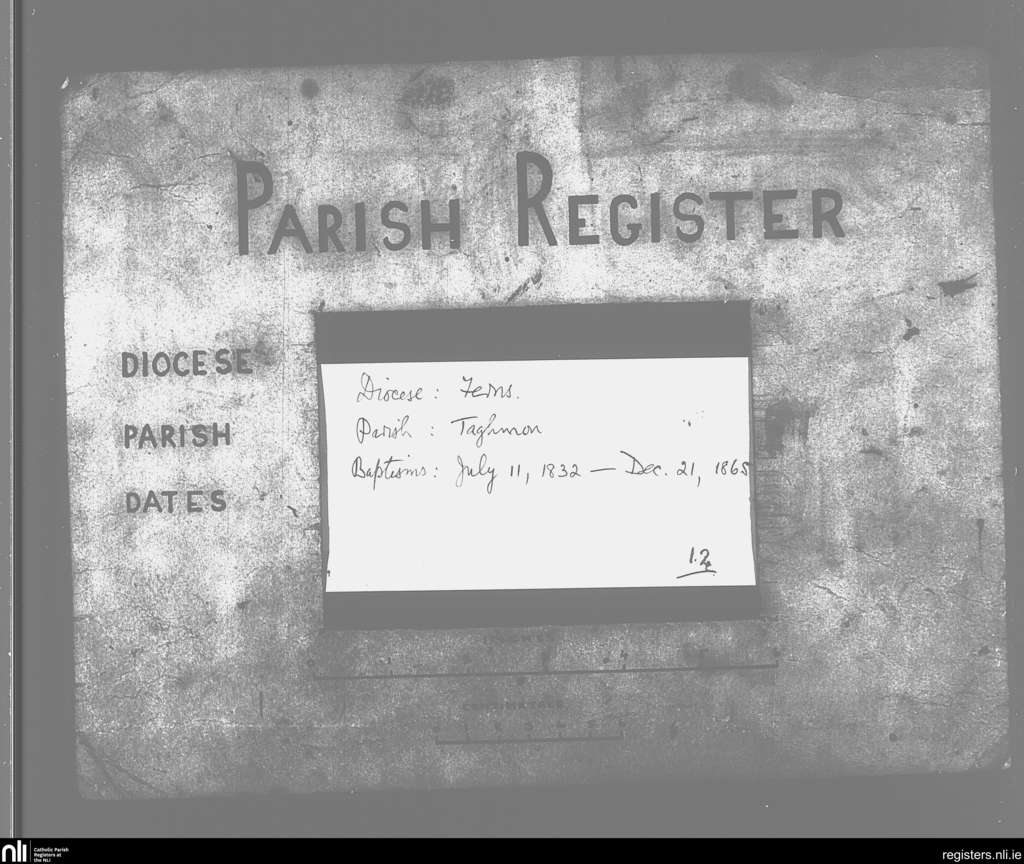 PARISH REGISTER
DIOCESE
PARISH
DATES
Diocese : Ferns.
Parish : Taghmon
Baptisms : July 11, 1832 — Dec. 21, 1865
1.2
nli
Catholic Parish
Registers at
the NLI
registers.nli.ie